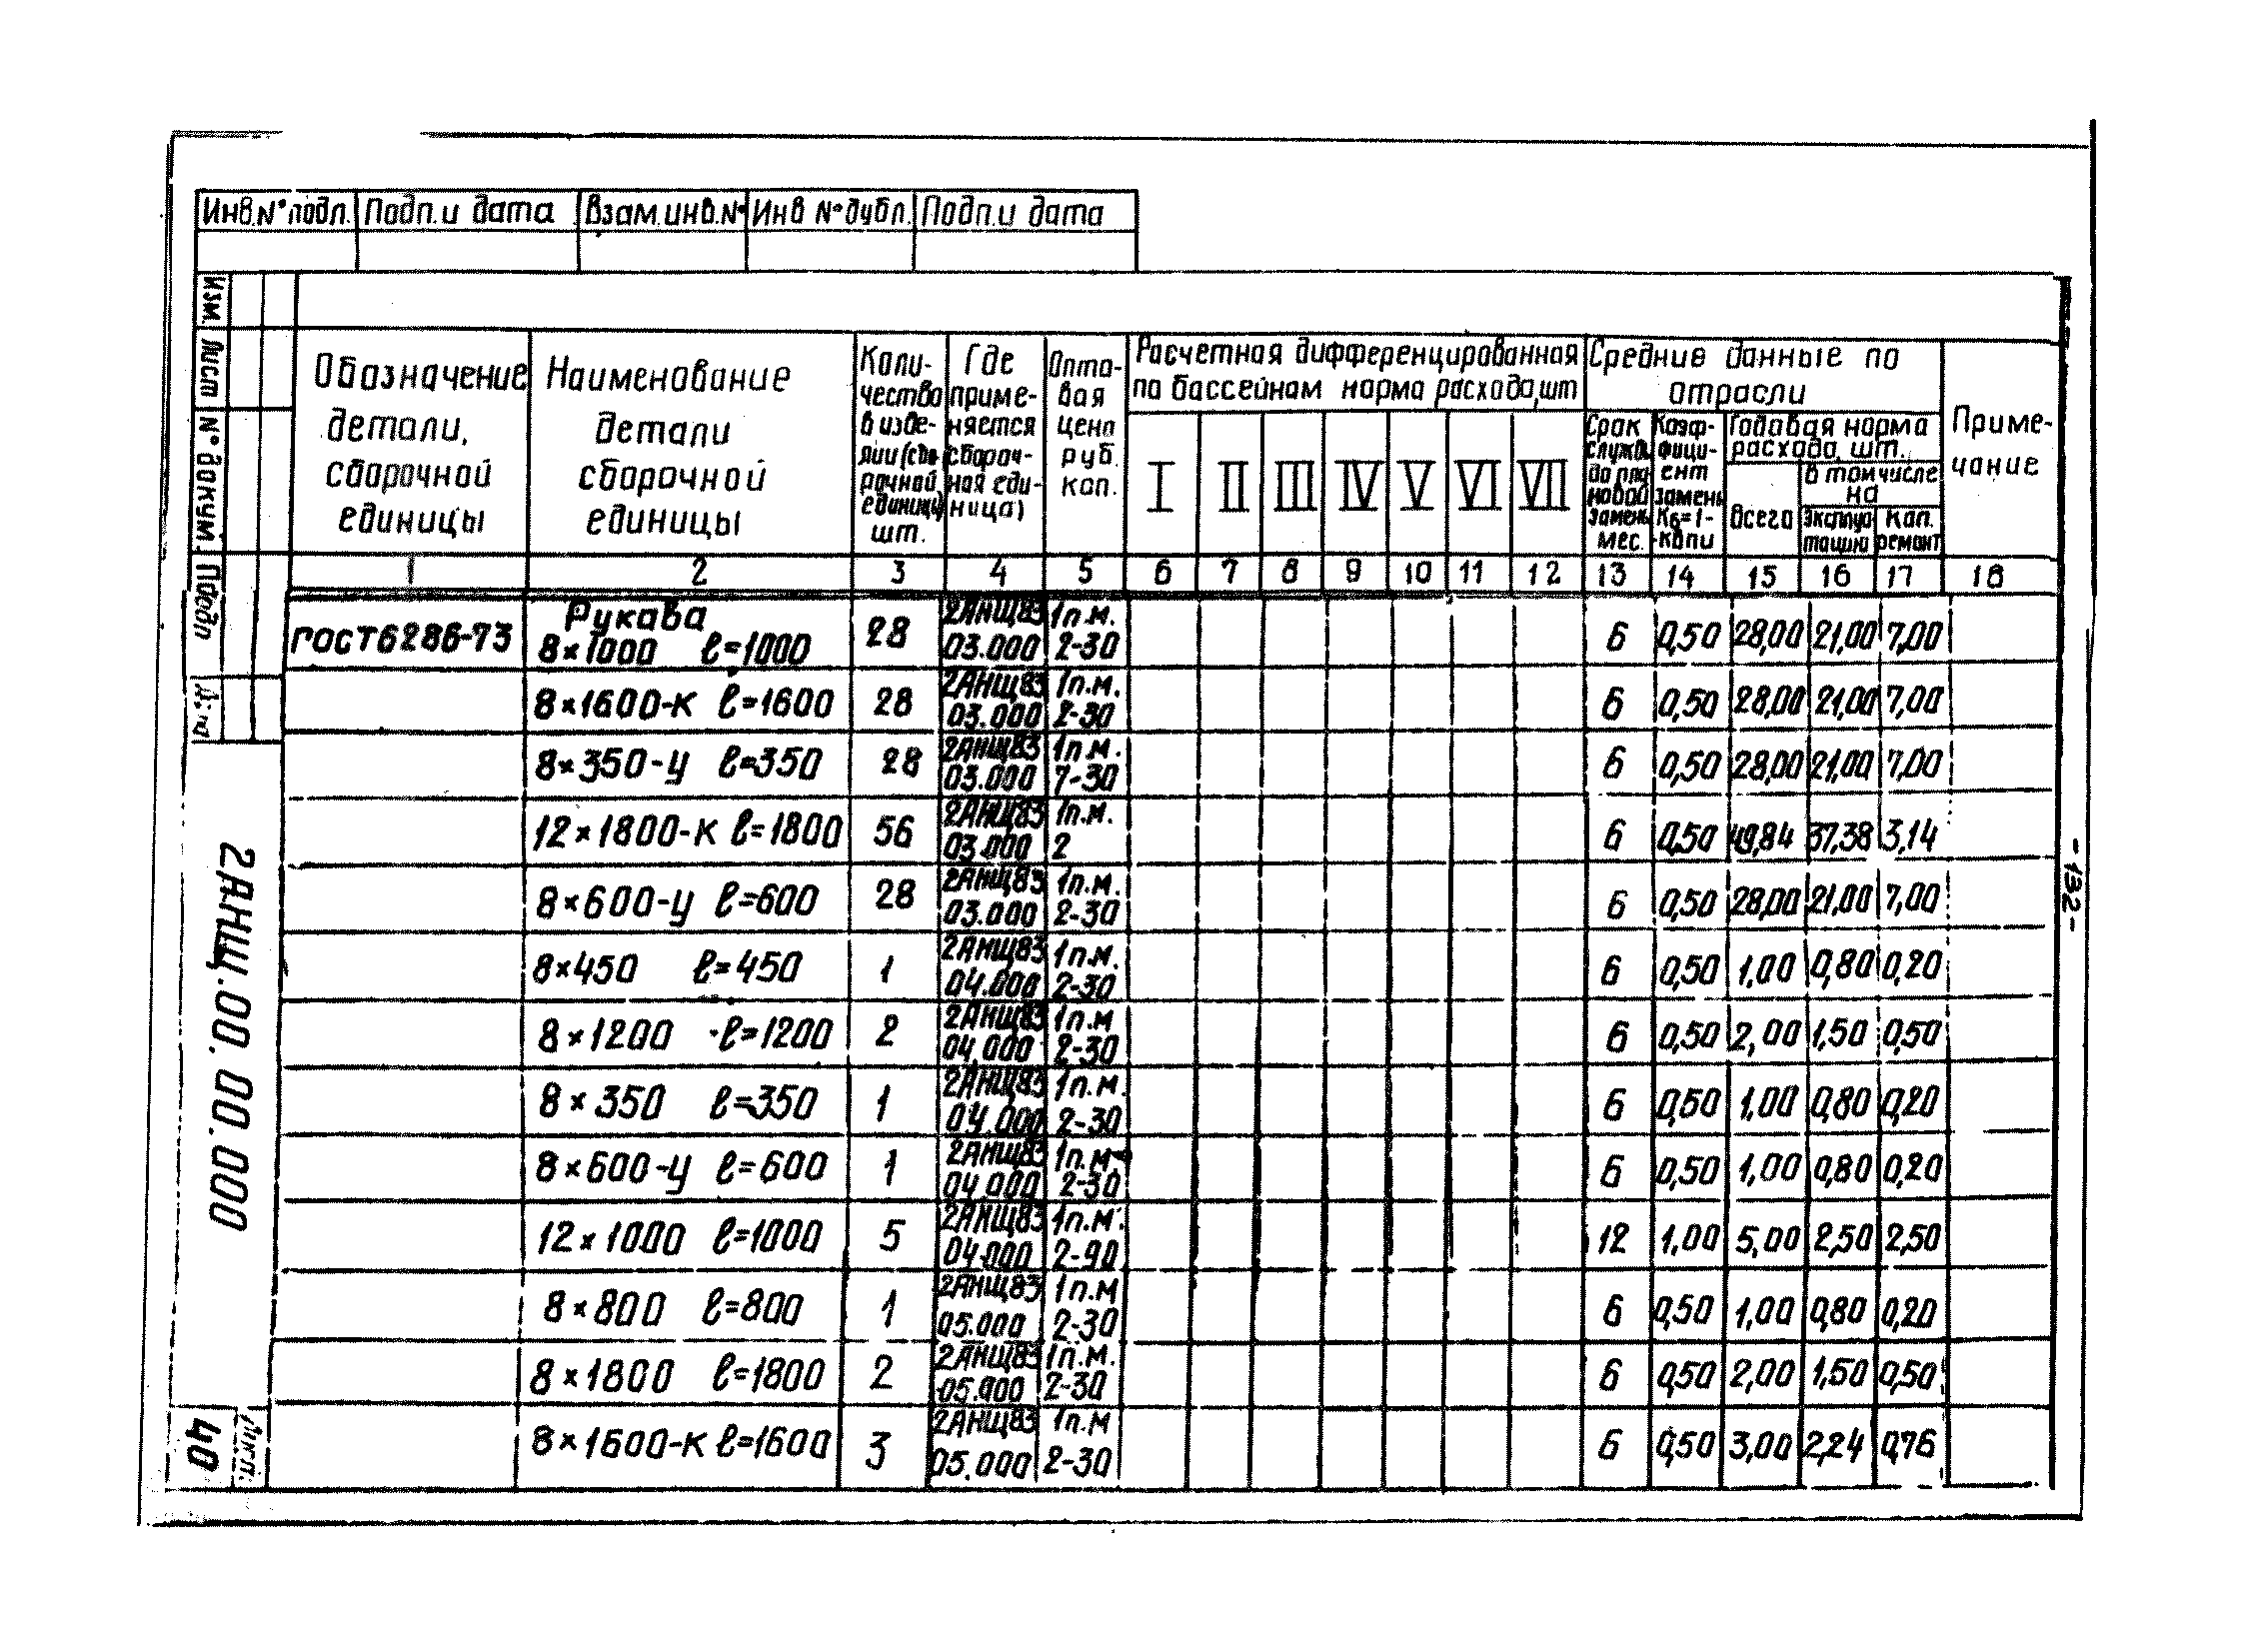 Инв.№ подл. Подп.и дата Взам.инв.№ Инв №дубл. Подп.и дата
Изм. Лист № докум. Подп Дата
Обозначение детали, сборочной единицы
Наименование детали сборочной единицы
Количество в изделии (сборочной единице) шт.
Где применяется сборочная единица)
Оптовая цена руб. коп.
Расчетная дифференцированная
по бассейнам норма расхода, шт
I II III IV V VI VII
Средние данные по
отрасли
Срок службы до плановой замены мес.
Коэффициент замены
Годовая норма
расхода, шт.
всего
в том числе
на
эксплуатацию
кап. ремонт
Примечание
1 2 3 4 5 6 7 8 9 10 11 12 13 14 15 16 17 18
Рукава
ГОСТ6286-73 8×1000 ℓ=1000 28 2АНЩ83 03.000 1п.м. 2-30 6 0,50 28,00 21,00 7,00
8×1600-К ℓ=1600 28 2АНЩ83 03.000 1п.м. 2-30 6 0,50 28,00 21,00 7,00
8×350-У ℓ=350 28 2АНЩ83 03.000 1п.м. 7-30 6 0,50 28,00 21,00 7,00
12×1800-К ℓ=1800 56 2АНЩ83 03.000 1п.м. 2 6 0,50 49,84 37,38 3,14
8×600-У ℓ=600 28 2АНЩ83 03.000 1п.м. 2-30 6 0,50 28,00 21,00 7,00
8×450 ℓ=450 1 2АНЩ83 04.000 1п.м. 2-30 6 0,50 1,00 0,80 0,20
8×1200 ℓ=1200 2 2АНЩ83 04.000 1п.м 2-30 6 0,50 2,00 1,50 0,50
8×350 ℓ=350 1 2АНЩ83 04.000 1п.м. 2-30 6 0,50 1,00 0,80 0,20
8×600-У ℓ=600 1 2АНЩ83 04.000 1п.м. 2-30 6 0,50 1,00 0,80 0,20
12×1000 ℓ=1000 5 2АНЩ83 04.000 1п.м. 2-90 12 1,00 5,00 2,50 2,50
8×800 ℓ=800 1 2АНЩ83 05.000 1п.м 2-30 6 0,50 1,00 0,80 0,20
8×1800 ℓ=1800 2 2АНЩ83 05.000 1п.м. 2-30 6 0,50 2,00 1,50 0,50
8×1600-К ℓ=1600 3 2АНЩ83 05.000 1п.м 2-30 6 0,50 3,00 2,24 0,76
2АНЩ.00.00.000
Лист.
40
-132-